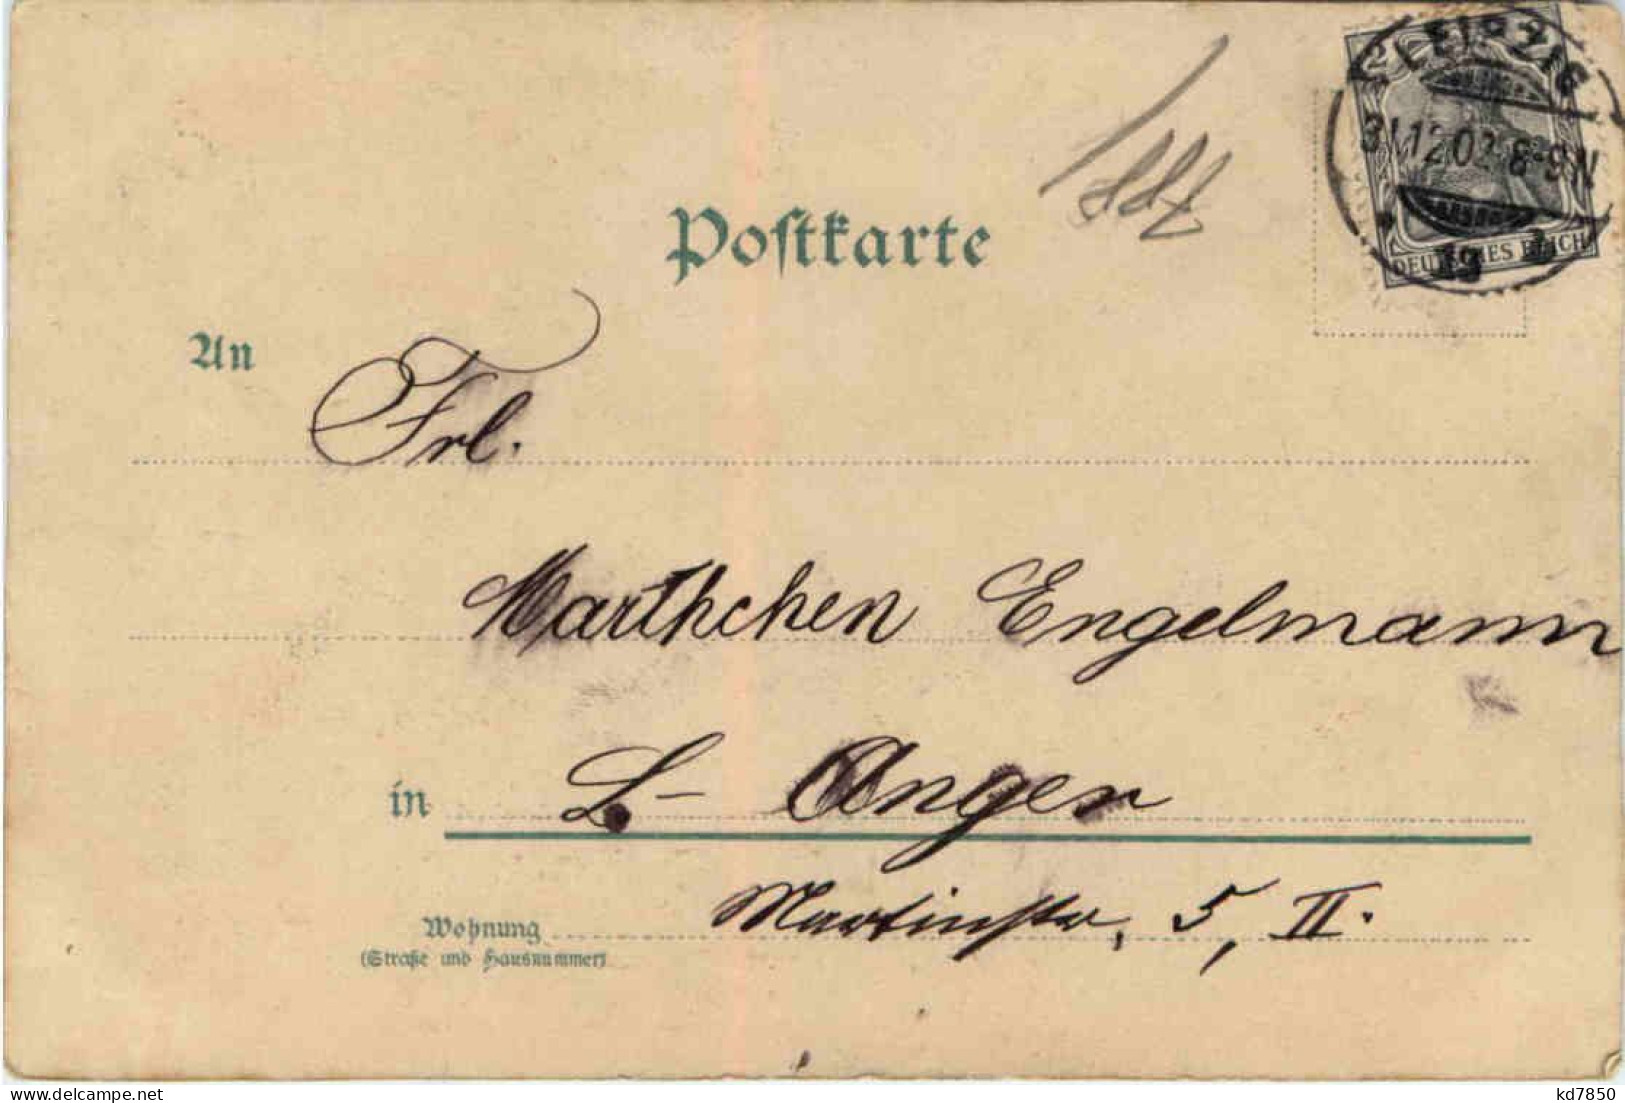 LEIPZIG
31.12.02. 8-9N
19
DEUTSCHES REICH
Postkarte
An Frl.
Marthchen Engelmann
in L.- Anger
Wohnung Martinstr, 5, II.
(Straße und Hausnummer)
kd7850